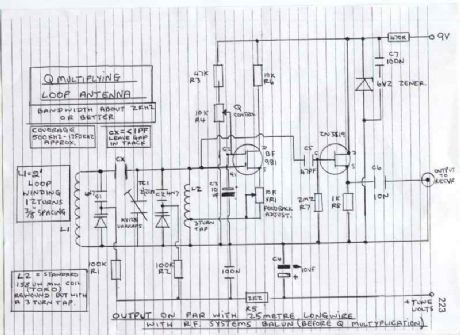 Q MULTIPLYING
LOOP ANTENNA
BANDWIDTH ABOUT 2KHZ
OR BETTER
COVERAGE
500KHZ - 1750KHZ
APPROX.
CX = <1PF
LEAVE GAP
IN TRACK
L1 = 2'
LOOP
WINDING
12 TURNS
3/8 SPACING
L1
L2 = STANDARD
158 UH MW COIL
(TORO)
REWOUND BUT WITH
A 3 TURN TAP.
CX
C1
TC1
C2
KV1236
VARICAPS
L2
3 TURN
TAP
100K
R1
100K
R2
47K
R3
10K
R4
Q
CONTROL
10K
R6
BF
981
G2
G1
D
S
C3
1K
VR1
FEEDBACK
ADJUST.
100N
R5
2K2
C4
10UF
C5
47PF
2M2
R7
2N3819
1K
R8
C6
10N
470R
9V
C7
100N
6V2 ZENER
OUTPUT
TO
+ TUNE
VOLTS
OUTPUT ON PAR WITH 25 METRE LONGWIRE
WITH R.F. SYSTEMS BALUN (BEFORE Q MULTYPLICATION)
223